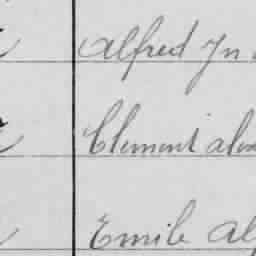 Alfred Jn
Clement Alex
Emile Alf